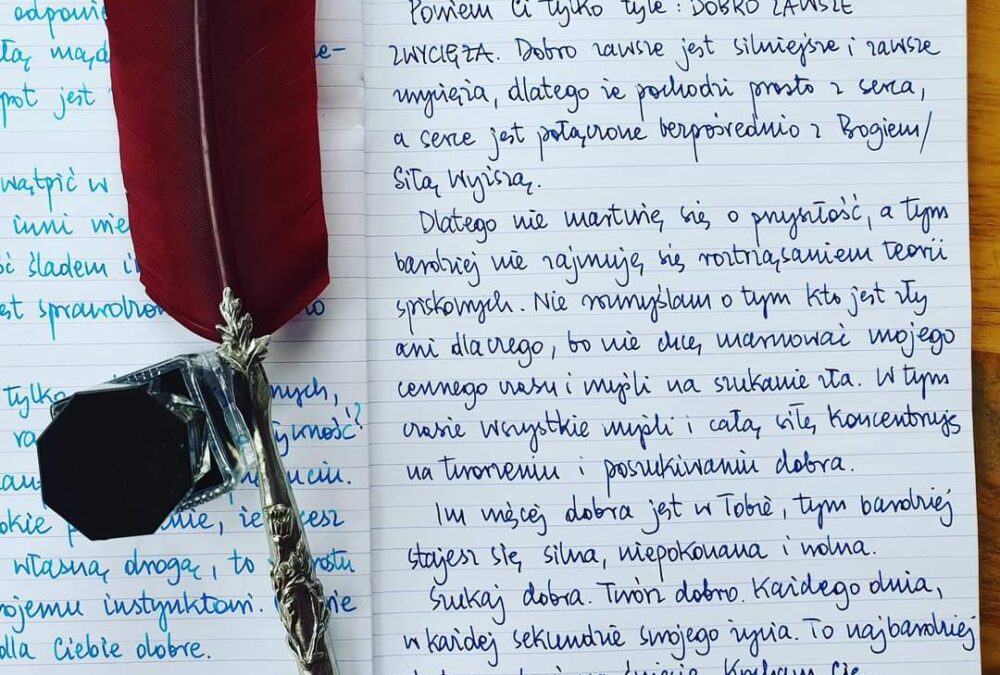 odpowie
łą mąd
e-
pot jest
wątpić w
inni nie
ść śladem i
est sprawdzo
tylko
nych,
tywność?
uciu.
okie
nie, że
cesz
własną drogą, to
prostu
ojemu instynktowi.
nie
dla Ciebie dobre.
Powiem Ci tylko tyle: DOBRO ZAWSZE
ZWYCIĘŻA. Dobro zawsze jest silniejsze i zawsze
zwycięża, dlatego że pochodzi prosto z serca,
a serce jest połączone bezpośrednio z Bogiem/
Siłą Wyższą.
Dlatego nie martwię się o przyszłość, a tym
bardziej nie zajmuję się roztrząsaniem teorii
spiskowych. Nie rozmyślam o tym kto jest zły
ani dlaczego, bo nie chcę marnować mojego
cennego czasu i myśli na szukanie zła. W tym
czasie wszystkie myśli i całą siłę koncentruję
na tworzeniu i poszukiwaniu dobra.
Im więcej dobra jest w Tobie, tym bardziej
stajesz się silna, niepokonana i wolna.
Szukaj dobra. Twórz dobro. Każdego dnia,
w każdej sekundzie swojego życia. To najbardziej
Kocham Cię